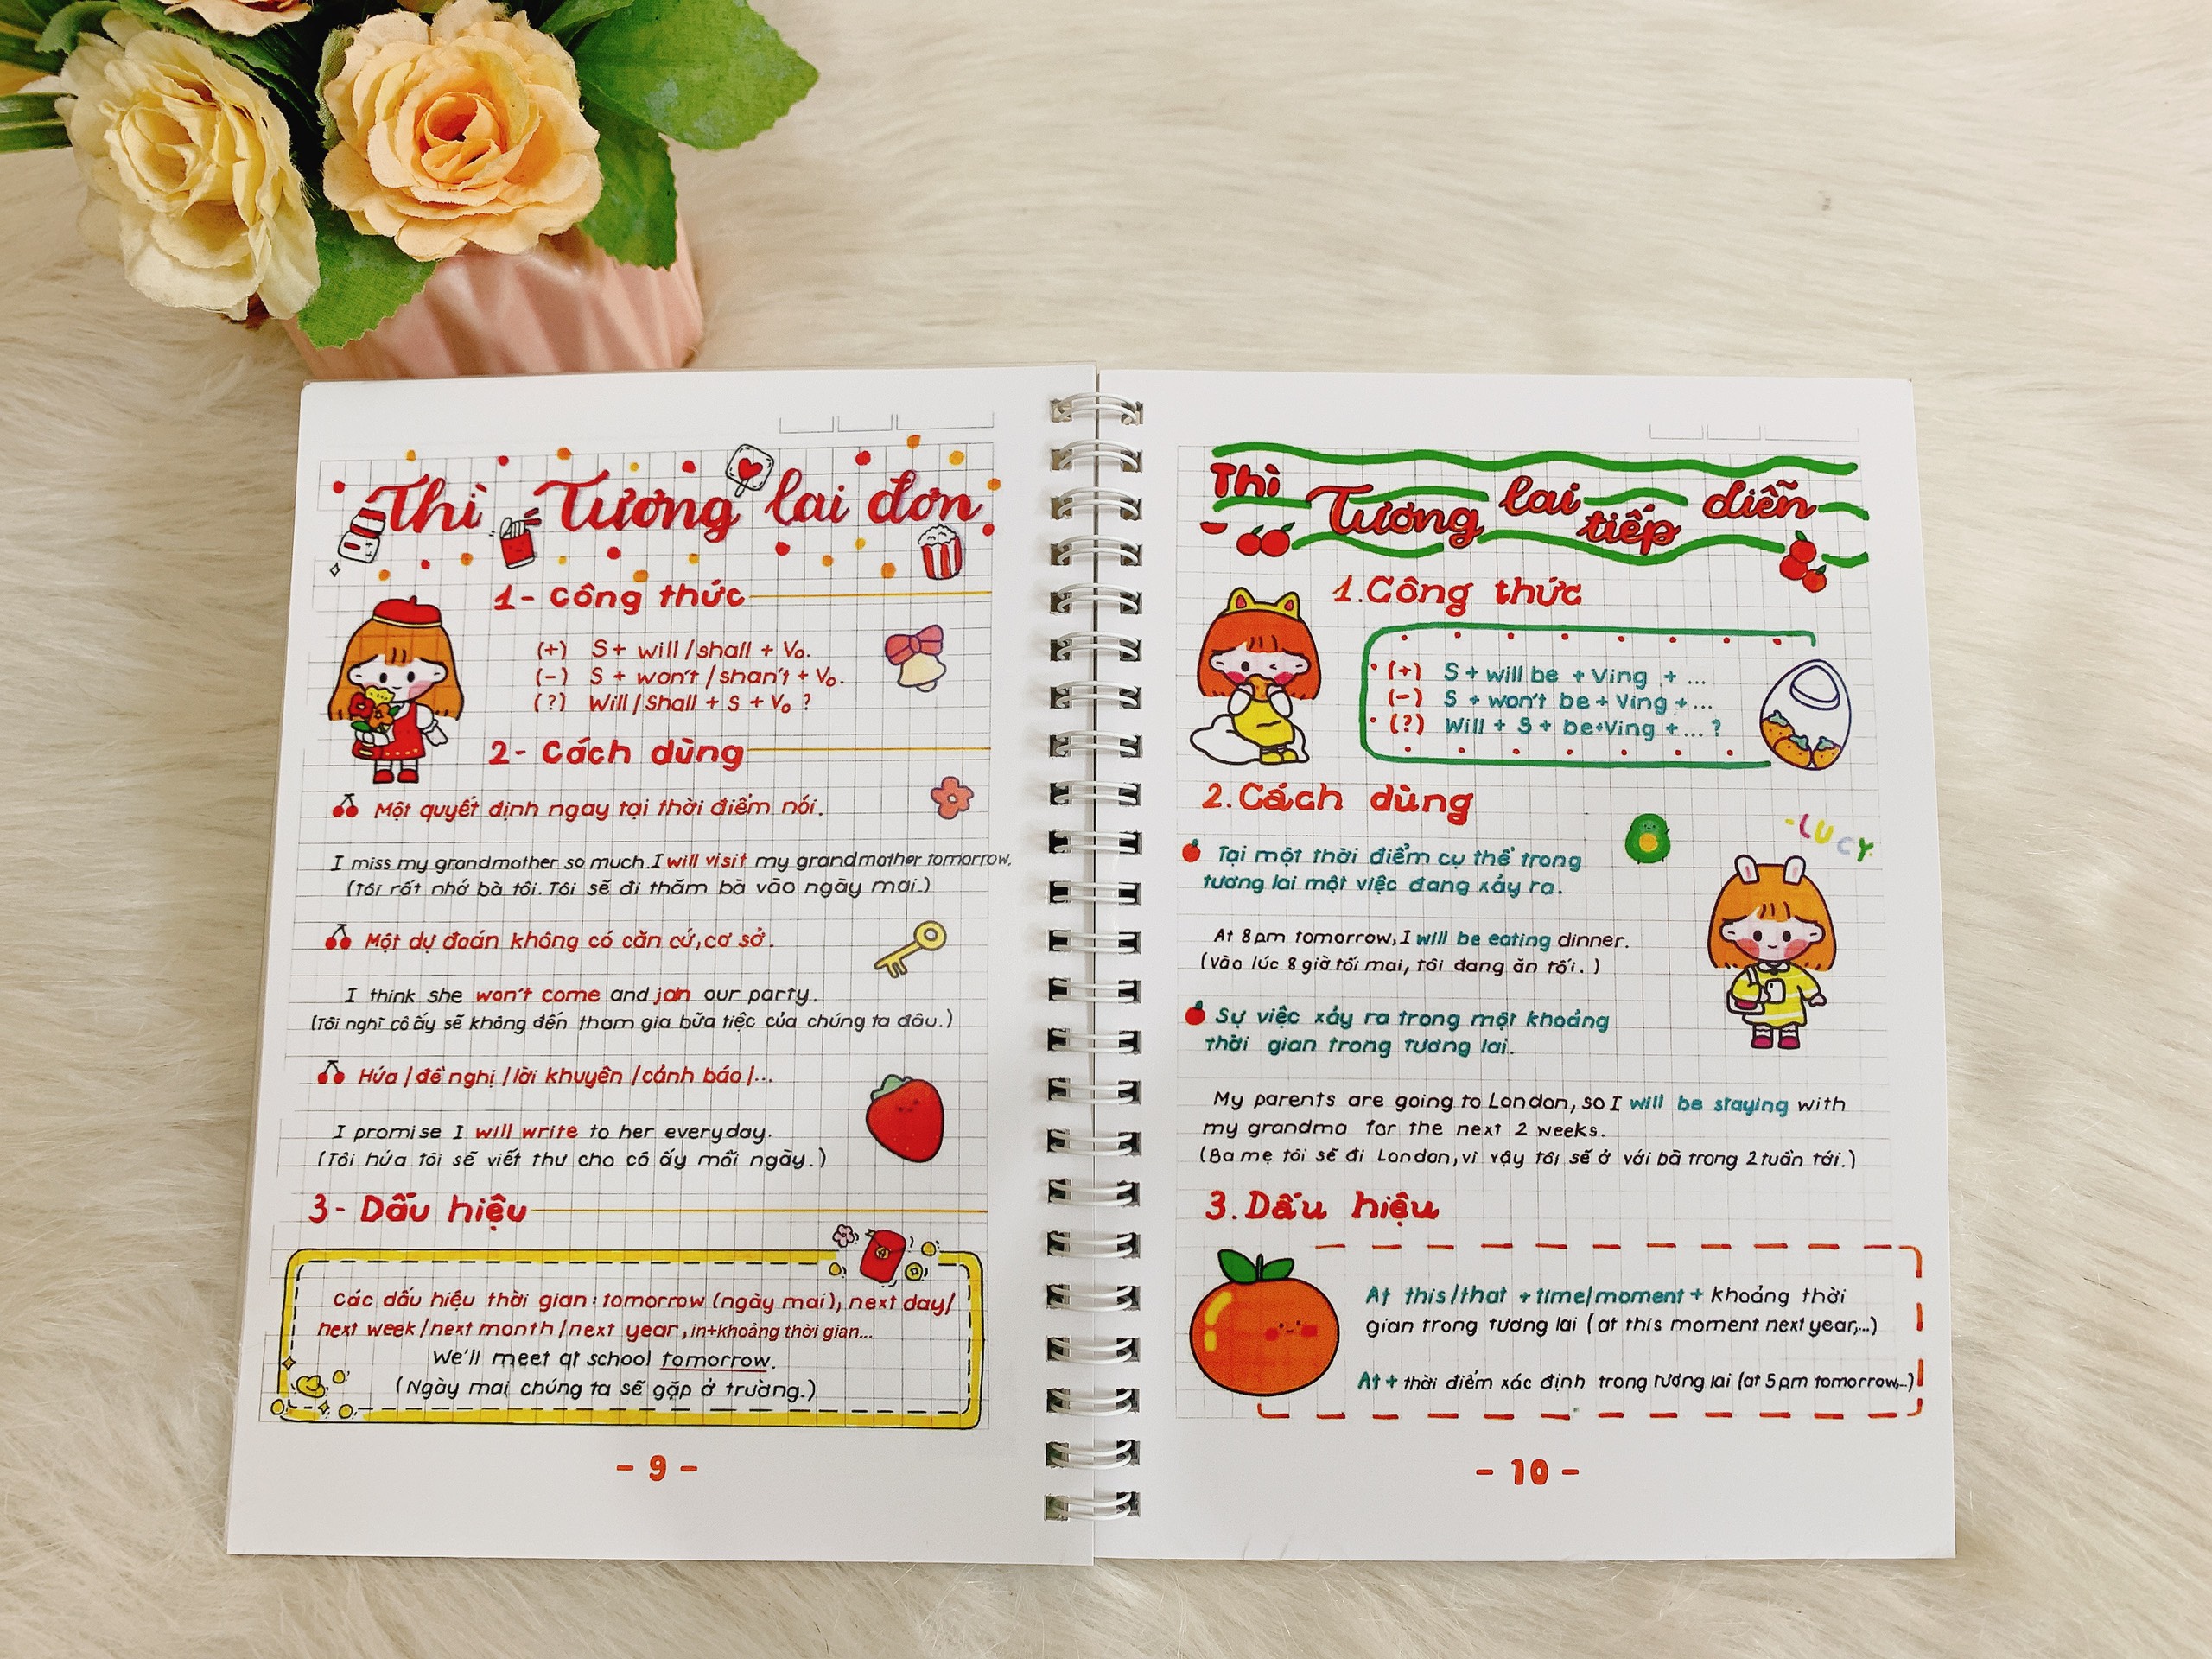 Thì Tương lai đơn
1- Công thức
(+) S + will / shall + V₀.
(-) S + won't / shan't + V₀.
(?) Will / Shall + S + V₀ ?
2- Cách dùng
Một quyết định ngay tại thời điểm nói.
I miss my grandmother so much. I will visit my grandmother tomorrow.
(Tôi rất nhớ bà tôi. Tôi sẽ đi thăm bà vào ngày mai.)
Một dự đoán không có căn cứ, cơ sở.
I think she won't come and join our party.
(Tôi nghĩ cô ấy sẽ không đến tham gia bữa tiệc của chúng ta đâu.)
Hứa / đề nghị / lời khuyên / cảnh báo /...
I promise I will write to her everyday.
(Tôi hứa tôi sẽ viết thư cho cô ấy mỗi ngày.)
3- Dấu hiệu
Các dấu hiệu thời gian: tomorrow (ngày mai), next day/
next week / next month / next year, in+khoảng thời gian...
We'll meet at school tomorrow.
(Ngày mai chúng ta sẽ gặp ở trường.)
- 9 -
Thì Tương lai tiếp diễn
1. Công thức
(+) S + will be + Ving + ...
(-) S + won't be + Ving + ...
(?) Will + S + be+Ving + ... ?
2. Cách dùng
-LUCY
Tại một thời điểm cụ thể trong
tương lai một việc đang xảy ra.
At 8pm tomorrow, I will be eating dinner.
(Vào lúc 8 giờ tối mai, tôi đang ăn tối.)
Sự việc xảy ra trong một khoảng
thời gian trong tương lai.
My parents are going to London, so I will be staying with
my grandma for the next 2 weeks.
(Ba mẹ tôi sẽ đi London, vì vậy tôi sẽ ở với bà trong 2 tuần tới.)
3. Dấu hiệu
At this/that + time/moment + khoảng thời
gian trong tương lai (at this moment next year,...)
At + thời điểm xác định trong tương lai (at 5pm tomorrow,...)
- 10 -